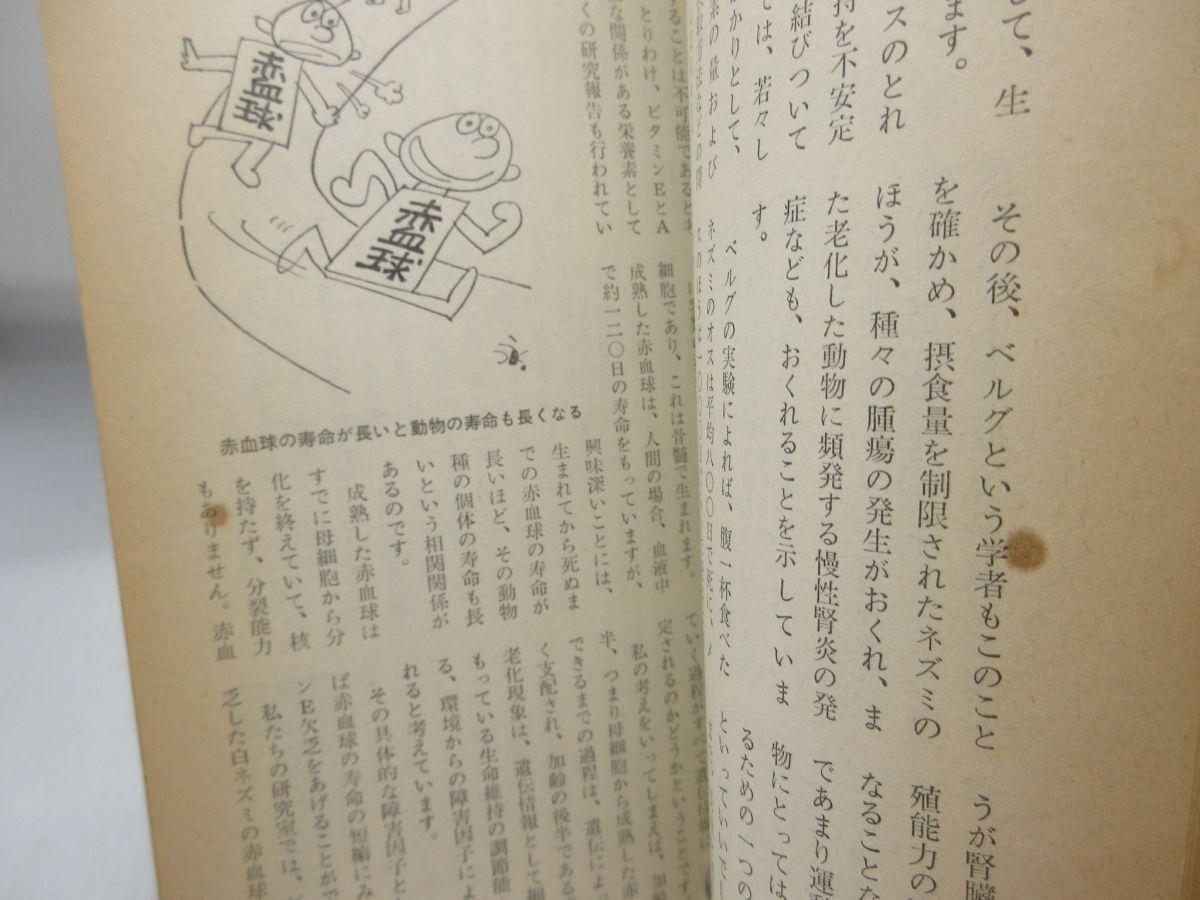 して、生
ます。
スのとれ
持を不安定
結びついて
ては、若々し
かりとして、
素の量および
その後、ベルグという学者もこのこと
を確かめ、摂食量を制限されたネズミの
ほうが、種々の腫瘍の発生がおくれ、ま
た老化した動物に頻発する慢性腎炎の発
症なども、おくれることを示していま
す。
ベルグの実験によれば、腹一杯食べた
ネズミのオスは平均八〇〇日で死に、メ
うが腎臓
殖能力の
なることな
であまり運動
物にとっては
るための一つの
といっていいでし
することは不可能であると考
とりわけ、ビタミンEとA
な関係がある栄養素として
くの研究報告も行われてい
赤血球
赤血球
赤血球の寿命が長いと動物の寿命も長くなる
細胞であり、これは骨髄で生まれます。
成熟した赤血球は、人間の場合、血液中
で約一二〇日の寿命をもっていますが、
興味深いことには、
生まれてから死ぬま
での赤血球の寿命が
長いほど、その動物
種の個体の寿命も長
いという相関関係が
あるのです。
成熟した赤血球は
すでに母細胞から分
化を終えていて、核
を持たず、分裂能力
もありません。赤血
定されるのかどうかということです
私の考えをいってしまえば、加齢
半、つまり母細胞から成熟した赤
できるまでの過程は、遺伝によっ
く支配され、加齢の後半である
老化現象は、遺伝情報として細
もっている生命維持の調節能
る、環境からの障害因子によ
れると考えています。
その具体的な障害因子と
ば赤血球の寿命の短縮にみ
ンE欠乏をあげることがで
私たちの研究室では、ビ
乏した白ネズミの赤血球